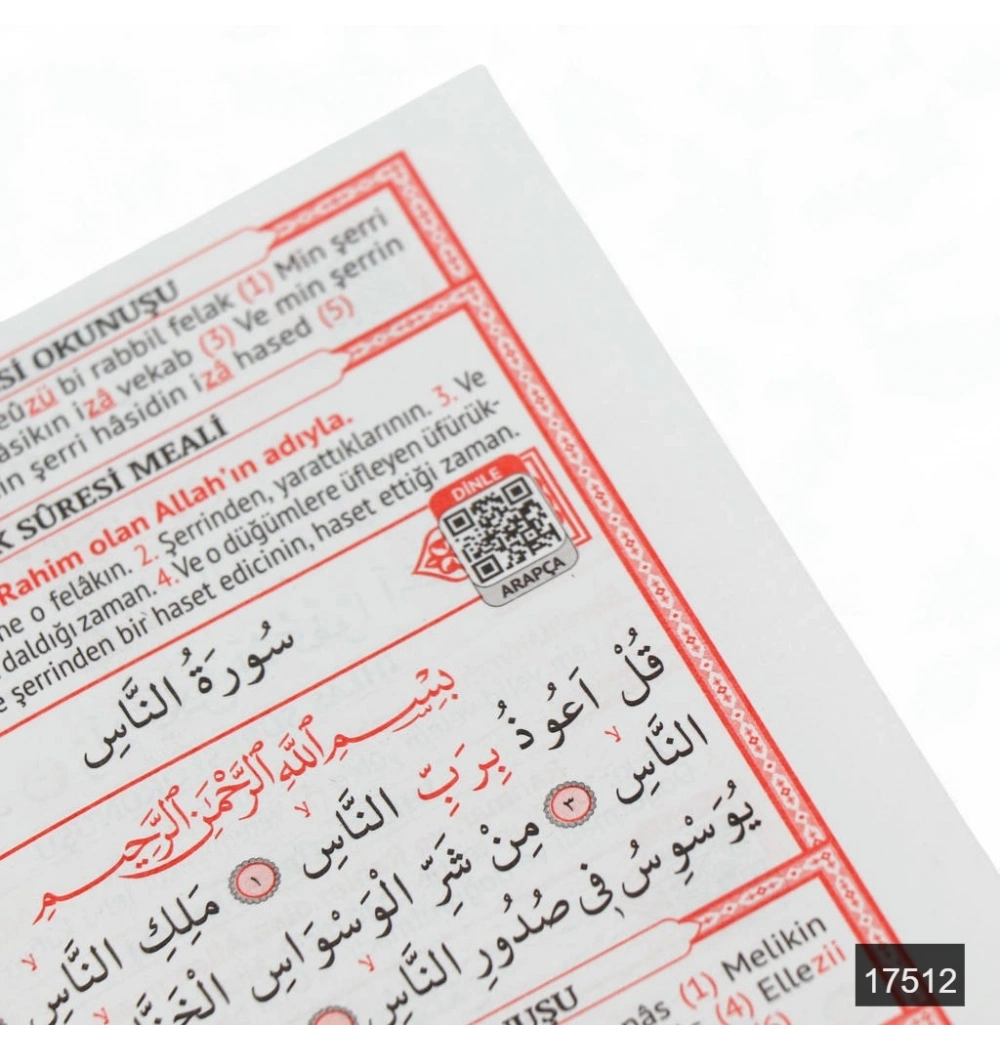 SI OKUNUŞU
eûzü bi rabbil felak (1) Min şerri
âsikın izâ vekab (3) Ve min şerrin
in şerri hâsidin izâ hased (5)
K SÛRESİ MEALİ
Rahim olan Allah'ın adıyla.
ne o felâkın. 2. Şerrinden, yarattıklarının. 3. Ve
daldığı zaman. 4. Ve o düğümlere üfleyen üfürük-
e şerrinden bir haset edicinin, haset ettiği zaman.
DİNLE
ARAPÇA
سُورَةُ النَّاسِ
بِسْمِ اللَّهِ الرَّحْمَنِ الرَّحِيمِ
قُلْ اَعُوذُ بِرَبِّ النَّاسِ ١ مَلِكِ النَّاسِ
النَّاسِ ٣ مِنْ شَرِّ الْوَسْوَاسِ الْخَنَّا
يُوَسْوِسُ فِى صُدُورِ النَّاسِ
NUŞU
nâs (1) Melikin
(4) Ellezii
17512